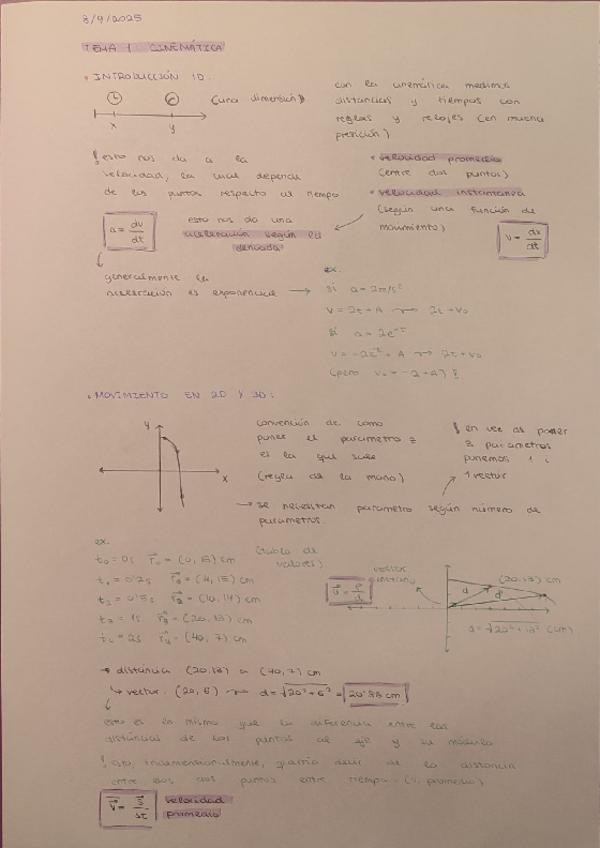 8/9/2025
TEMA 1 CINEMÁTICA
• INTRODUCCIÓN 1D:
(una dimensión)
x
y
con la cinemática medimos
distancias y tiempos con
reglas y relojes (en mucha
precisión)
! esto nos da a la
velocidad, la cual depende
de los puntos respecto al tiempo
• velocidad promedio
(entre dos puntos)
• velocidad instantanea
(según una función de
movimiento)
v = dx/dt
a = dv/dt
esto nos da una
aceleración según la
derivada
generalmente la
aceleración es exponencial →
ex.
si a = 2m/s²
v = 2t + A → 2t + v₀
si a = 2e⁻ᵗ
(pero v₀ = -2 + A) !
• MOVIMIENTO EN 2D Y 3D:
y
x
convención de como
poner el parametro z
es la que sube
(regla de la mano)
! en vez de poner
3 parametros
ponemos 1
1 vector
→ se necesitan parametro según número de
parametros.
ex.
(tabla de
valores)
t₀ = 0s r₀ = (0, 15) cm
= (4, 15) cm
= (10, 14) cm
= 1s = (20, 13) cm
= 2s = (40, 7) cm
vector
(20, 13) cm
d
d = √20² + 13² (cm)
→ distáncia (20, 13) a (40, 7) cm
↳ vector. (20, 6) → d = √20² + 6² = 20'88 cm
esto es lo mismo que la diferencia entre las
distáncias de los puntos al eje y su módulo
! esto, de la distancia
entre dos puntos entre tiempo (v. promedio)
velocidad
promedio